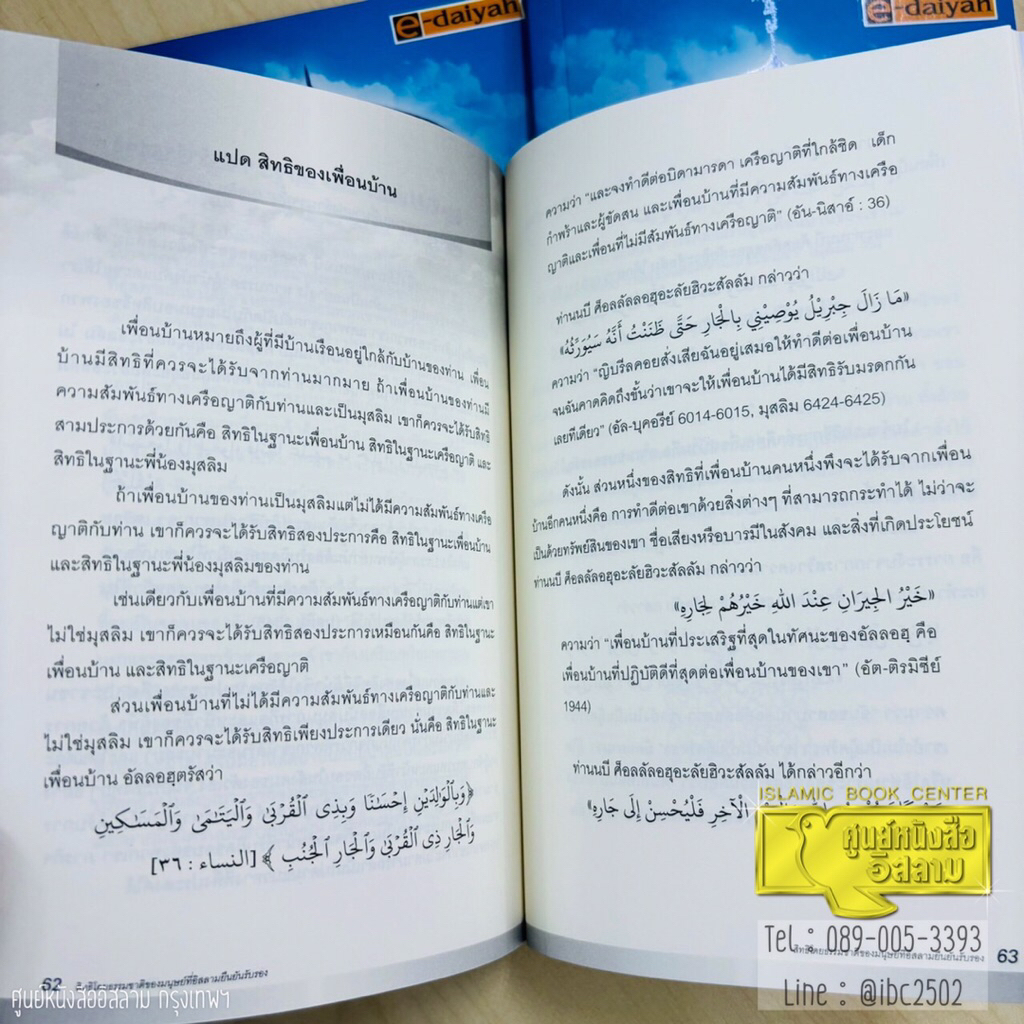 e-daiyah
e-daiyah
แปด สิทธิของเพื่อนบ้าน
เพื่อนบ้านหมายถึงผู้ที่มีบ้านเรือนอยู่ใกล้กับบ้านของท่าน เพื่อน
บ้านมีสิทธิที่ควรจะได้รับจากท่านมากมาย ถ้าเพื่อนบ้านของท่านมี
ความสัมพันธ์ทางเครือญาติกับท่านและเป็นมุสลิม เขาก็ควรจะได้รับสิทธิ
สามประการด้วยกันคือ สิทธิในฐานะเพื่อนบ้าน สิทธิในฐานะเครือญาติ และ
สิทธิในฐานะพี่น้องมุสลิม
ถ้าเพื่อนบ้านของท่านเป็นมุสลิมแต่ไม่ได้มีความสัมพันธ์ทางเครือ
ญาติกับท่าน เขาก็ควรจะได้รับสิทธิสองประการคือ สิทธิในฐานะเพื่อนบ้าน
และสิทธิในฐานะพี่น้องมุสลิมของท่าน
เช่นเดียวกับเพื่อนบ้านที่มีความสัมพันธ์ทางเครือญาติกับท่านแต่เขา
ไม่ใช่มุสลิม เขาก็ควรจะได้รับสิทธิสองประการเหมือนกันคือ สิทธิในฐานะ
เพื่อนบ้าน และสิทธิในฐานะเครือญาติ
ส่วนเพื่อนบ้านที่ไม่ได้มีความสัมพันธ์ทางเครือญาติกับท่านและ
ไม่ใช่มุสลิม เขาก็ควรจะได้รับสิทธิเพียงประการเดียว นั่นคือ สิทธิในฐานะ
เพื่อนบ้าน อัลลอฮฺตรัสว่า
﴿وَبِٱلْوَٰلِدَيْنِ إِحْسَٰنًا وَبِذِى ٱلْقُرْبَىٰ وَٱلْيَتَٰمَىٰ وَٱلْمَسَٰكِينِ
وَٱلْجَارِ ذِى ٱلْقُرْبَىٰ وَٱلْجَارِ ٱلْجُنُبِ ﴾ [النساء : ٣٦]
62 สิทธิโดยธรรมชาติของมนุษย์ที่อิสลามยืนยันรับรอง
ความว่า "และจงทำดีต่อบิดามารดา เครือญาติที่ใกล้ชิด เด็ก
กำพร้าและผู้ขัดสน และเพื่อนบ้านที่มีความสัมพันธ์ทางเครือ
ญาติและเพื่อนที่ไม่มีสัมพันธ์ทางเครือญาติ" (อัน-นิสาอ์ : 36)
ท่านนบี ศ็อลลัลลอฮุอะลัยฮิวะสัลลัม กล่าวว่า
«مَا زَالَ جِبْرِيْلُ يُوْصِيْنِي بِالْجَارِ حَتَّى ظَنَنْتُ أَنَّهُ سَيُوَرِّثُهُ»
ความว่า "ญิบรีลคอยสั่งเสียฉันอยู่เสมอให้ทำดีต่อเพื่อนบ้าน
จนฉันคาดคิดถึงขั้นว่าเขาจะให้เพื่อนบ้านได้มีสิทธิรับมรดกกัน
เลยทีเดียว" (อัล-บุคอรีย์ 6014-6015, มุสลิม 6424-6425)
ดังนั้น ส่วนหนึ่งของสิทธิที่เพื่อนบ้านคนหนึ่งพึงจะได้รับจากเพื่อน
บ้านอีกคนหนึ่งคือ การทำดีต่อเขาด้วยสิ่งต่างๆ ที่สามารถกระทำได้ ไม่ว่าจะ
เป็นด้วยทรัพย์สินของเขา ชื่อเสียงหรือบารมีในสังคม และสิ่งที่เกิดประโยชน์
ท่านนบี ศ็อลลัลลอฮุอะลัยฮิวะสัลลัม กล่าวว่า
«خَيْرُ الْجِيرَانِ عِنْدَ اللهِ خَيْرُهُمْ لِجَارِهِ»
ความว่า "เพื่อนบ้านที่ประเสริฐที่สุดในทัศนะของอัลลอฮฺ คือ
เพื่อนบ้านที่ปฏิบัติดีที่สุดต่อเพื่อนบ้านของเขา" (อัต-ติรมิซีย์
1944)
ท่านนบี ศ็อลลัลลอฮุอะลัยฮิวะสัลลัม ได้กล่าวอีกว่า
الْآخِرِ فَلْيُحْسِنْ إِلَى جَارِهِ»
สิทธิโดยธรรมชาติของมนุษย์ที่อิสลามยืนยันรับรอง 63
ISLAMIC BOOK CENTER
ศูนย์หนังสือ
อิสลาม
Tel : 089-005-3393
Line : @ibc2502
ศูนย์หนังสืออิสลาม กรุงเทพฯ